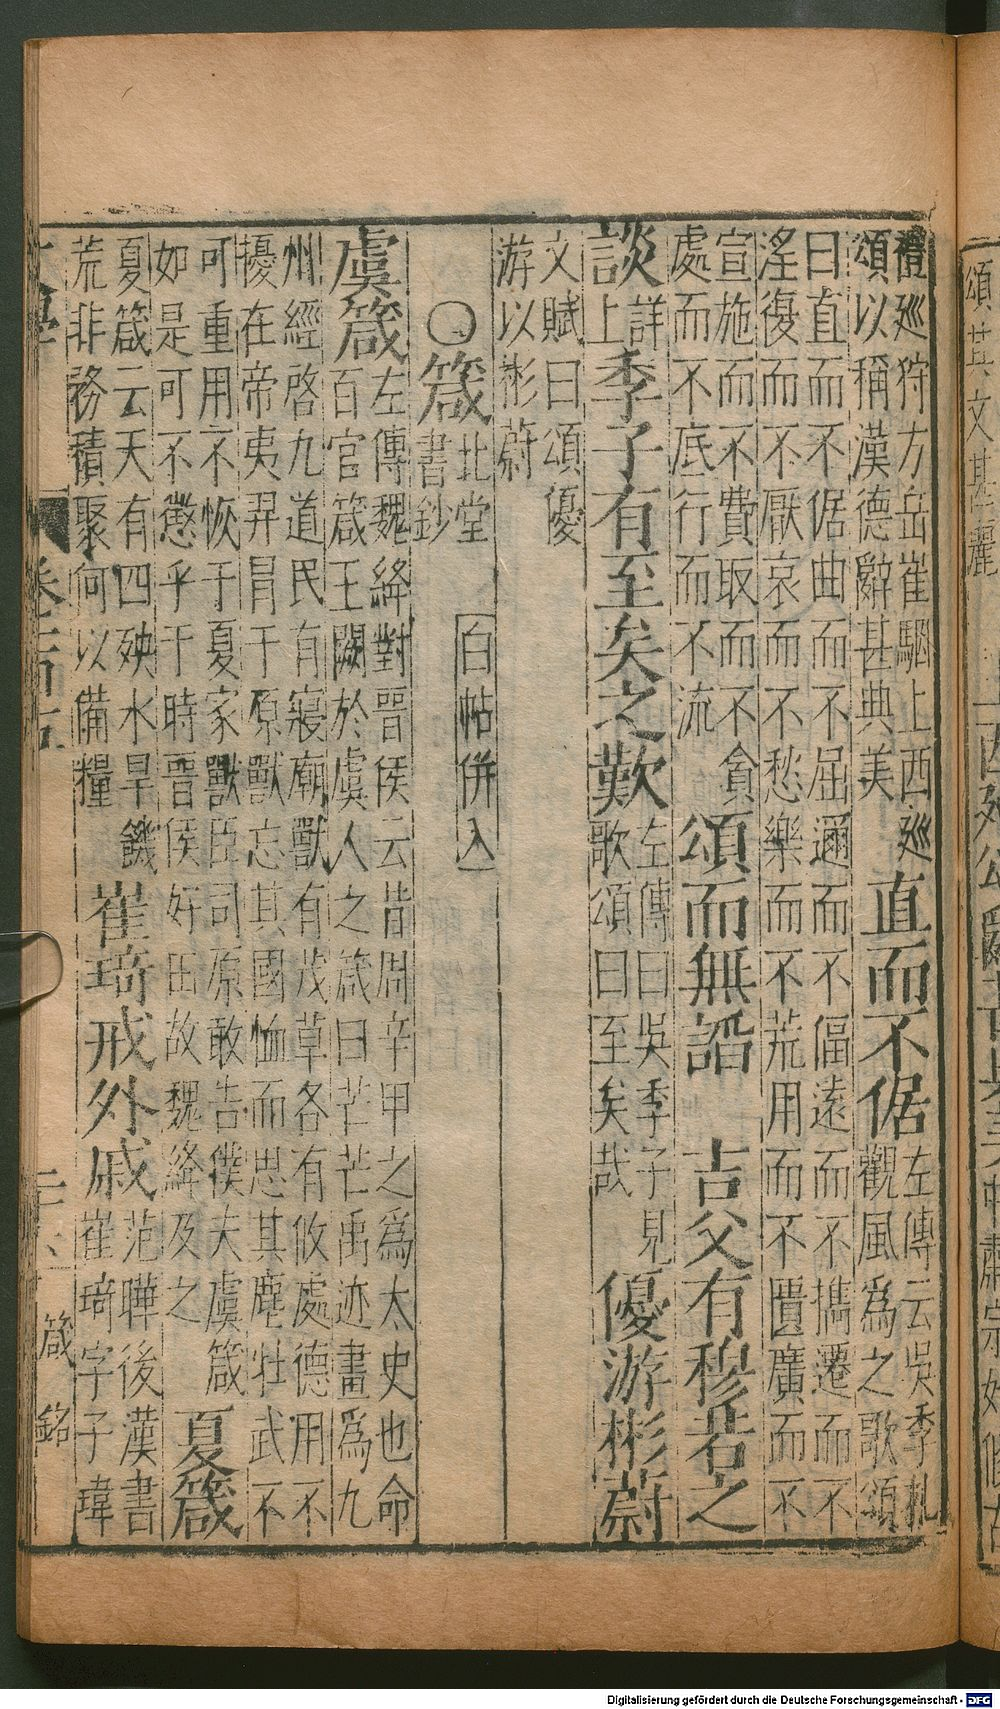 頌其文甚典麗
禮廵狩方岳崔駰上西廵
頌以稱漢德辭甚典美
直而不倨
左傳云吳季札
觀風爲之歌頌
曰直而不倨曲而不屈邇而不偪遠而不攜遷而不
淫復而不厭哀而不愁樂而不荒用而不匱廣而不
宣施而不費取而不貪
處而不底行而不流
頌而無諂 吉父有穆若之
談
詳
上
季子有至矣之歎
左傳曰吳季子見
歌頌曰至矣哉
優游彬蔚
文賦曰頌優
游以彬蔚
○箴
北堂
書鈔
白帖併入
虞箴
左傳魏絳對晉侯云昔周辛甲之爲太史也命
百官箴王闕於虞人之箴曰芒芒禹迹畫爲九
州經啓九道民有寢廟獸有茂草各有攸處德用不
擾在帝夷羿冒于原獸忘其國恤而思其麀牡武不
可重用不恢于夏家獸臣司原敢告僕夫虞箴
如是可不懲乎于時晉侯好田故魏絳及之
夏箴
夏箴云天有四殃水旱饑
荒非務積聚何以備糧
崔琦戒外戚
范曄後漢書
崔琦字子瑋
箴銘
Digitalisierung gefördert durch die Deutsche Forschungsgemeinschaft - DFG